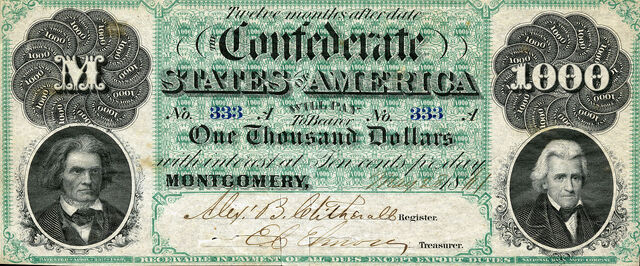 Twelve months after date
THE Confederate
M STATES OF AMERICA 1000
WILL PAY
No. 333 A To Bearer No. 333 A
One Thousand Dollars
with interest at Ten cents per day
MONTGOMERY,
Alex. B. Clitherall Register.
E.C. Elmore Treasurer.
RECEIVABLE IN PAYMENT OF ALL DUES EXCEPT EXPORT DUTIES